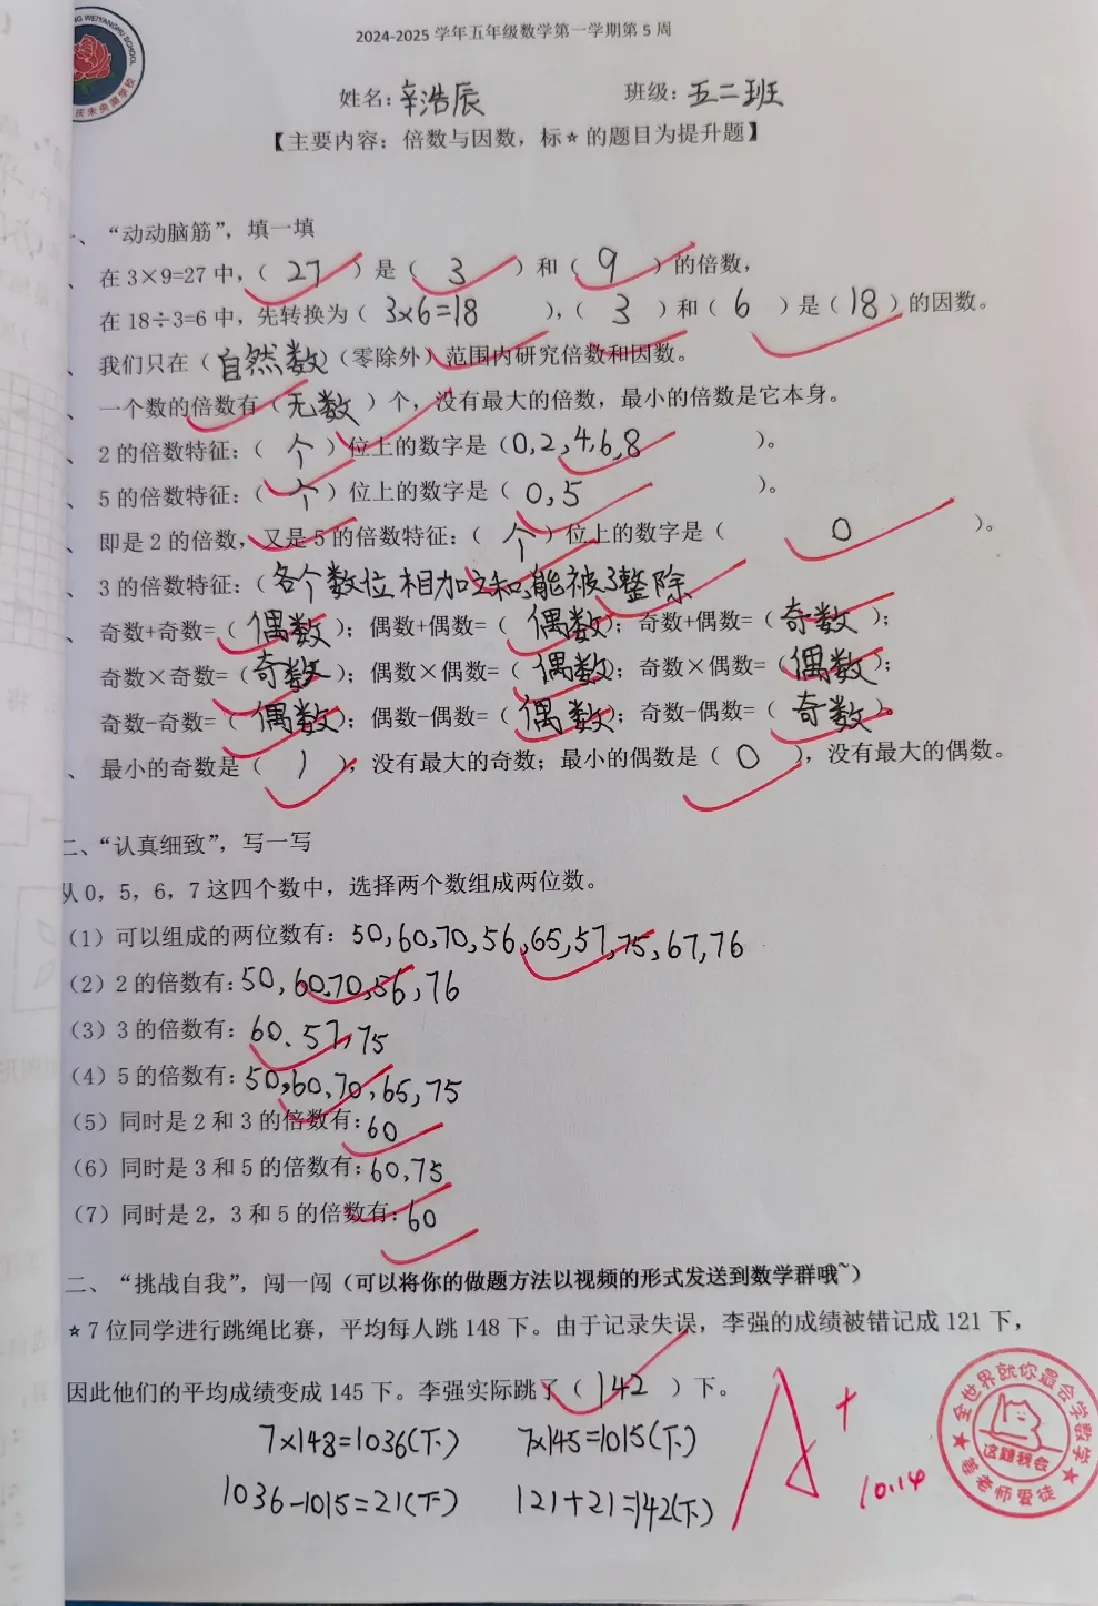 WEIYANGHU SCHOOL
2024-2025 学年五年级数学第一学期第 5 周
姓名：辛浩辰 班级：五二班
【主要内容：倍数与因数，标★的题目为提升题】
一、“动动脑筋”，填一填
、在 3×9=27 中，（ 27 ）是（ 3 ）和（ 9 ）的倍数，
在 18÷3=6 中，先转换为（ 3×6=18 ），（ 3 ）和（ 6 ）是（ 18 ）的因数。
、我们只在（自然数）（零除外）范围内研究倍数和因数。
、一个数的倍数有（无数）个，没有最大的倍数，最小的倍数是它本身。
、2 的倍数特征：（ 个 ）位上的数字是（0,2,4,6,8 ）。
、5 的倍数特征：（ 个 ）位上的数字是（ 0,5 ）。
、即是 2 的倍数，又是 5 的倍数特征：（ 个 ）位上的数字是（ 0 ）。
、3 的倍数特征：（各个数位相加之和,能被3整除
、奇数+奇数=（偶数）；偶数+偶数=（偶数）；奇数+偶数=（奇数）；
奇数×奇数=（奇数）；偶数×偶数=（偶数）；奇数×偶数=（偶数）；
奇数-奇数=（偶数）；偶数-偶数=（偶数）；奇数-偶数=（奇数）。
、最小的奇数是（ 1 ），没有最大的奇数；最小的偶数是（ 0 ），没有最大的偶数。
二、“认真细致”，写一写
从 0，5，6，7 这四个数中，选择两个数组成两位数。
（1）可以组成的两位数有：50,60,70,56,65,57,75,67,76
（2）2 的倍数有：50,60,70,56,76
（3）3 的倍数有：60.57,75
（4）5 的倍数有：50,60,70,65,75
（5）同时是 2 和 3 的倍数有：60
（6）同时是 3 和 5 的倍数有：60,75
（7）同时是 2，3 和 5 的倍数有：60
二、“挑战自我”，闯一闯（可以将你的做题方法以视频的形式发送到数学群哦~）
★7 位同学进行跳绳比赛，平均每人跳 148 下。由于记录失误，李强的成绩被错记成 121 下，
因此他们的平均成绩变成 145 下。李强实际跳了（ 142 ）下。
7×148=1036(下) 7×145=1015(下)
1036-1015=21(下) 121+21=142(下)
A+
10.14
全世界就你最会学数学
这题我会
老师爱徒